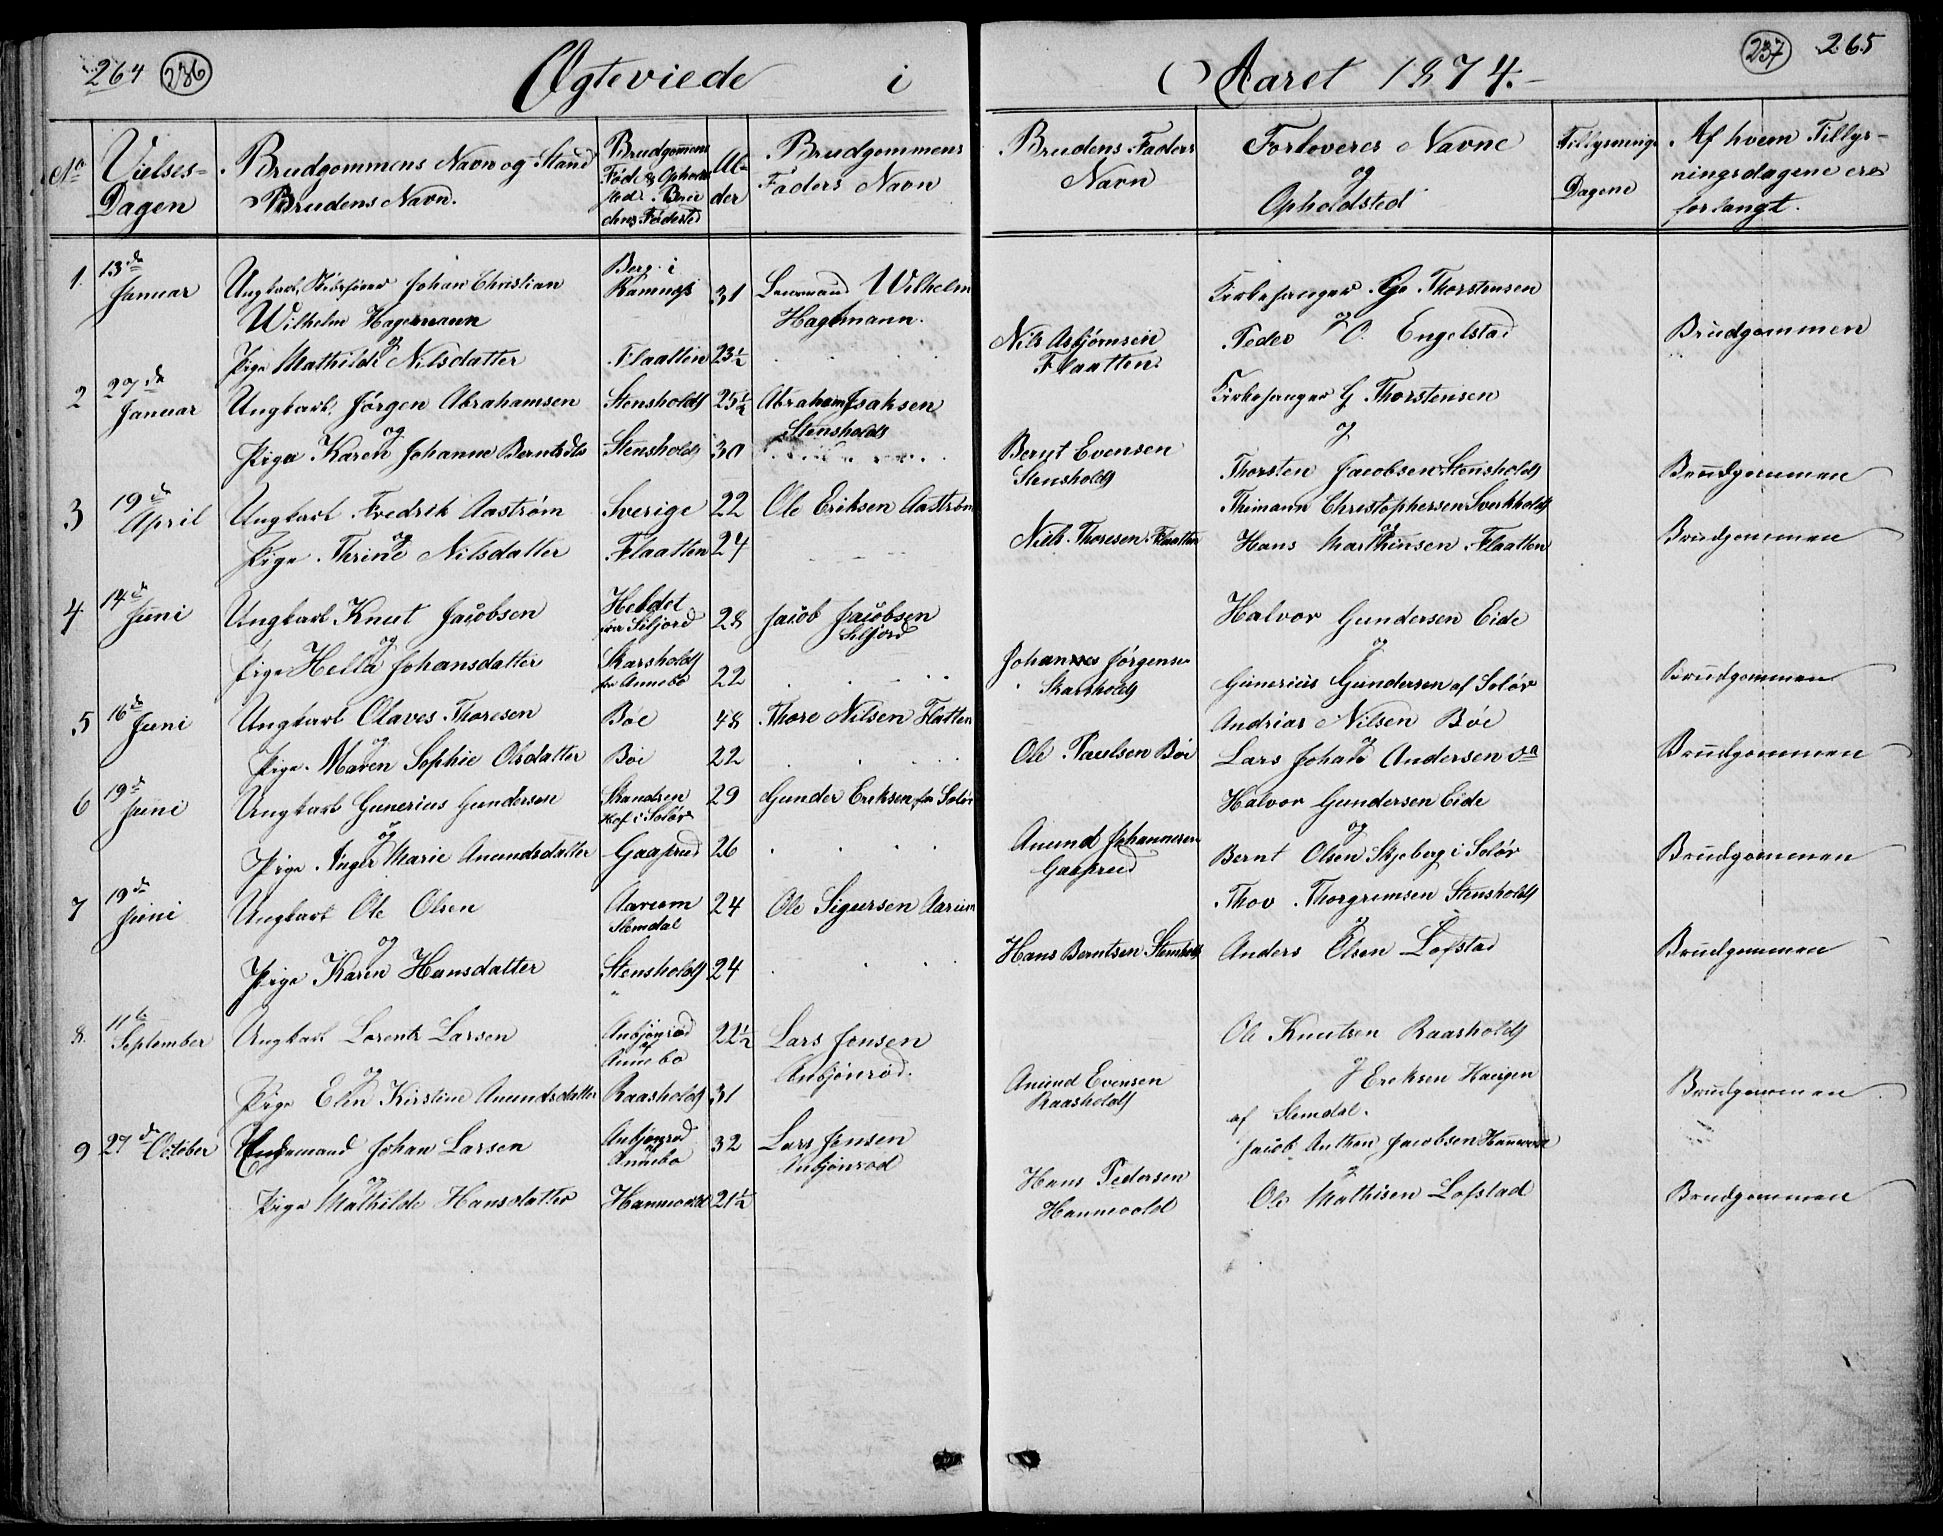 264 236
Ægteviede i
Aaret 1874.
237 265
No
Vielses-
Dagen
Brudgommens Navn og Stand
Brudens Navn.
Brudgommens
Føde & Ophold
sted. Bru
dens Fødested
Al-
der
Brudgommens
Faders Navn
Brudens Faders
Navn
Forloveres Navne
og
Opholdsted
Tillysnings
Dagene
Af hvem Tillys-
ningsdagene ere
forlangt.
1. 13de Januar Ungkarl, Johan Christian
Wilhelm Hagemann
Berg i
Ramnæs 31 Wilhelm
Hagemann.
Kirkesanger Thorstensen
og
Peder O. Engelstad
og
Pige Mathilde Nilsdatter Flaatten 23½ Nils Asbjørnsen
Flaatten. Brudgommen
2 27de Januar Ungkarl, Jørgen Abrahamsen Stensholdt 25½ Abraham Isaksen
Stensholdt
Kirkesanger G Thorstensen
og
og
Pige Karen Johanne Berntsdtr Stensholdt 30 Bernt Evensen
Stensholdt
Thorsten Jacobsen Stensholdt Brudgommen
3 19de April Ungkarl Fredrik Aastrøm Sverige 22 Ole Eriksen Aastrøm Thimann Christophersen Sverkholdt
og
og
Pige Thrine Nilsdatter Flaatten 24 Niels Thoresen Flaatten Hans Marthinsen Flaatten Brudgommen
4. 14de Juni Ungkarl Knut Jacobsen
fra Siljord 28 Jacob Jacobsen
Siljord
Halvor Gundersen Eide
og
og
Pige Hella Johansdatter Skarsholdt
for Annebo 22 Johannes Jørgensen
Skarsholdt
Gunerius Gundersen af Solør Brudgommen
5 16de Juni Ungkarl Olaves Thoresen Böe 48 Thore Nilsen Flatten Andrias Nilsen Böe
og
og
Pige Maren Sophie Olsdatter Böe 22 Ole Paulsen Böe Lars Johan Andersen Brudgommen
6 19de Juni Ungkarl Gunerius Gundersen
Hof i Solør 29 Gunder Eriksen fra Solør Halvor Gundersen Eide
og
og
Pige Inger Marie Anundsdatter Gaaserud 26 Anund Johannesen
Gaaserud
Bernt Olsen Skjeberg i Solør Brudgommen
7 19de Juni Ungkarl Ole Olsen Aarum
Slemdal 24 Ole Sigursen Aarum Thov Thorgrimsen Stensholdt
og
og
Pige Karen Hansdatter Stensholdt 24 Hans Berntsen Stensholdt Anders Olsen Lofstad Brudgommen
8. 11te September Ungkarl Lorents Larsen Anbjönrød
af
Annebo 22½ Lars Jensen
Anbjönrød.
Ole Knutsen Raasholdt
og
og
Pige Elen Kirstine Anundsdatter Raasholdt 31 Anund Evensen
Raasholdt
J Eriksen Haugen
af Slemdal. Brudgommen
9 27de October Enkemand Johan Larsen Anbjönrød
Annebo 32 Lars Jensen
Anbjönrød
Jacob Anthon Jacobsen Hannevold
og
og
Pige Mathilde Hansdatter Hannevold 21½ Hans Pedersen
Hannevold
Ole Mathisen Lofstad Brudgommen